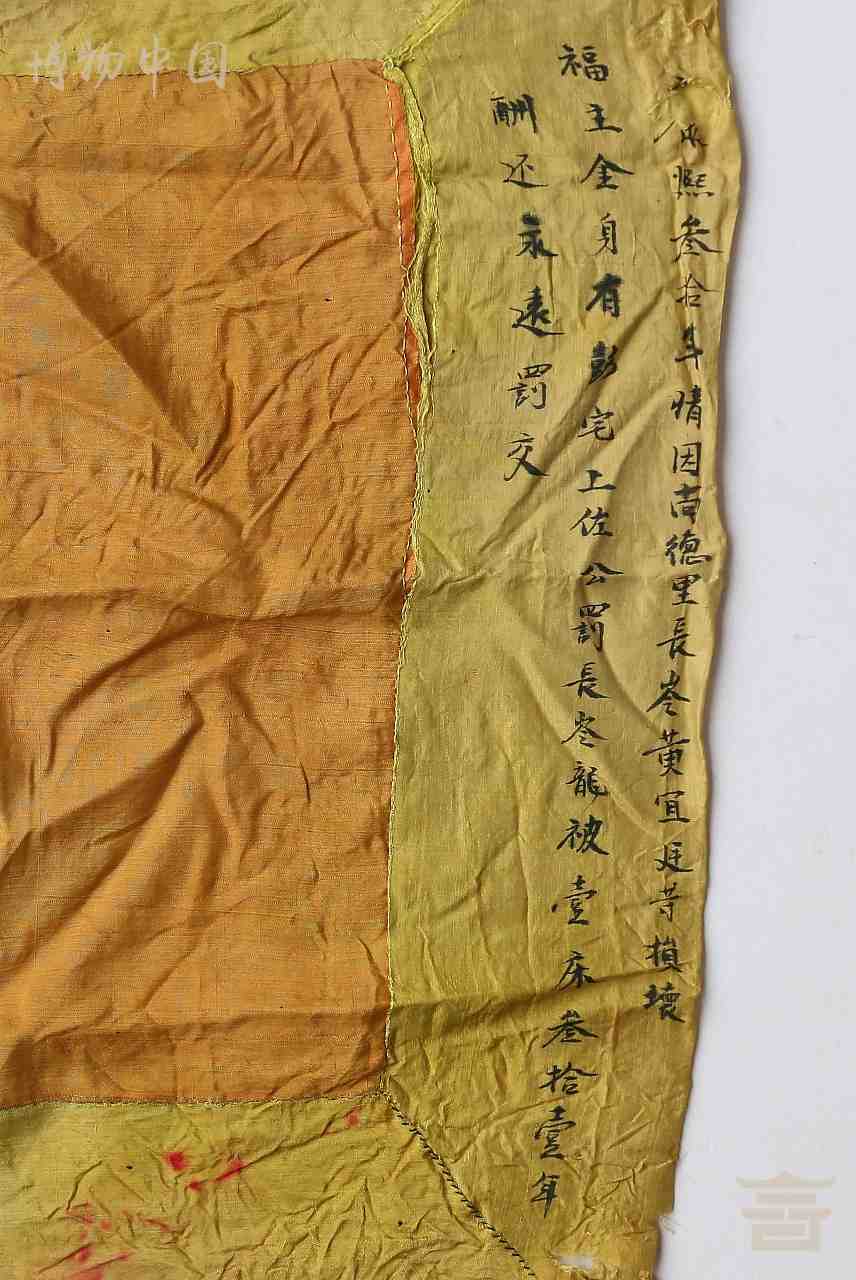 熙叁拾年情因尚德里長岺黄宜廷等損壞
福主金身有彭宅上佐公罰長岺龍被壹床叁拾壹年
酬还永遠罰交
博物中国